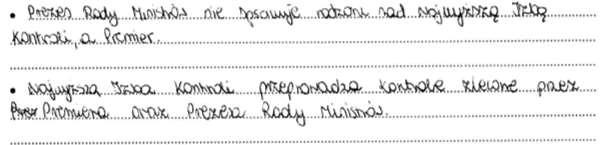 • Prezes Rady Ministrów nie sprawuje rodzoru nad Najwyższą Izbą
Kontroli, a Premier.
• Najwyższa Izba Kontroli przeprowadza kontrole zlecone przez
Przez Premiera oraz Prezesa Rady Ministrów.